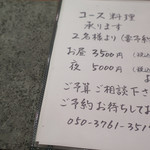 コース料理
承ります
2名様より(要予約
お昼 3500円 (税込
夜 5000円 (税込
ご予算ご相談下さ
ご予約お待ちしてお
050-3761-351